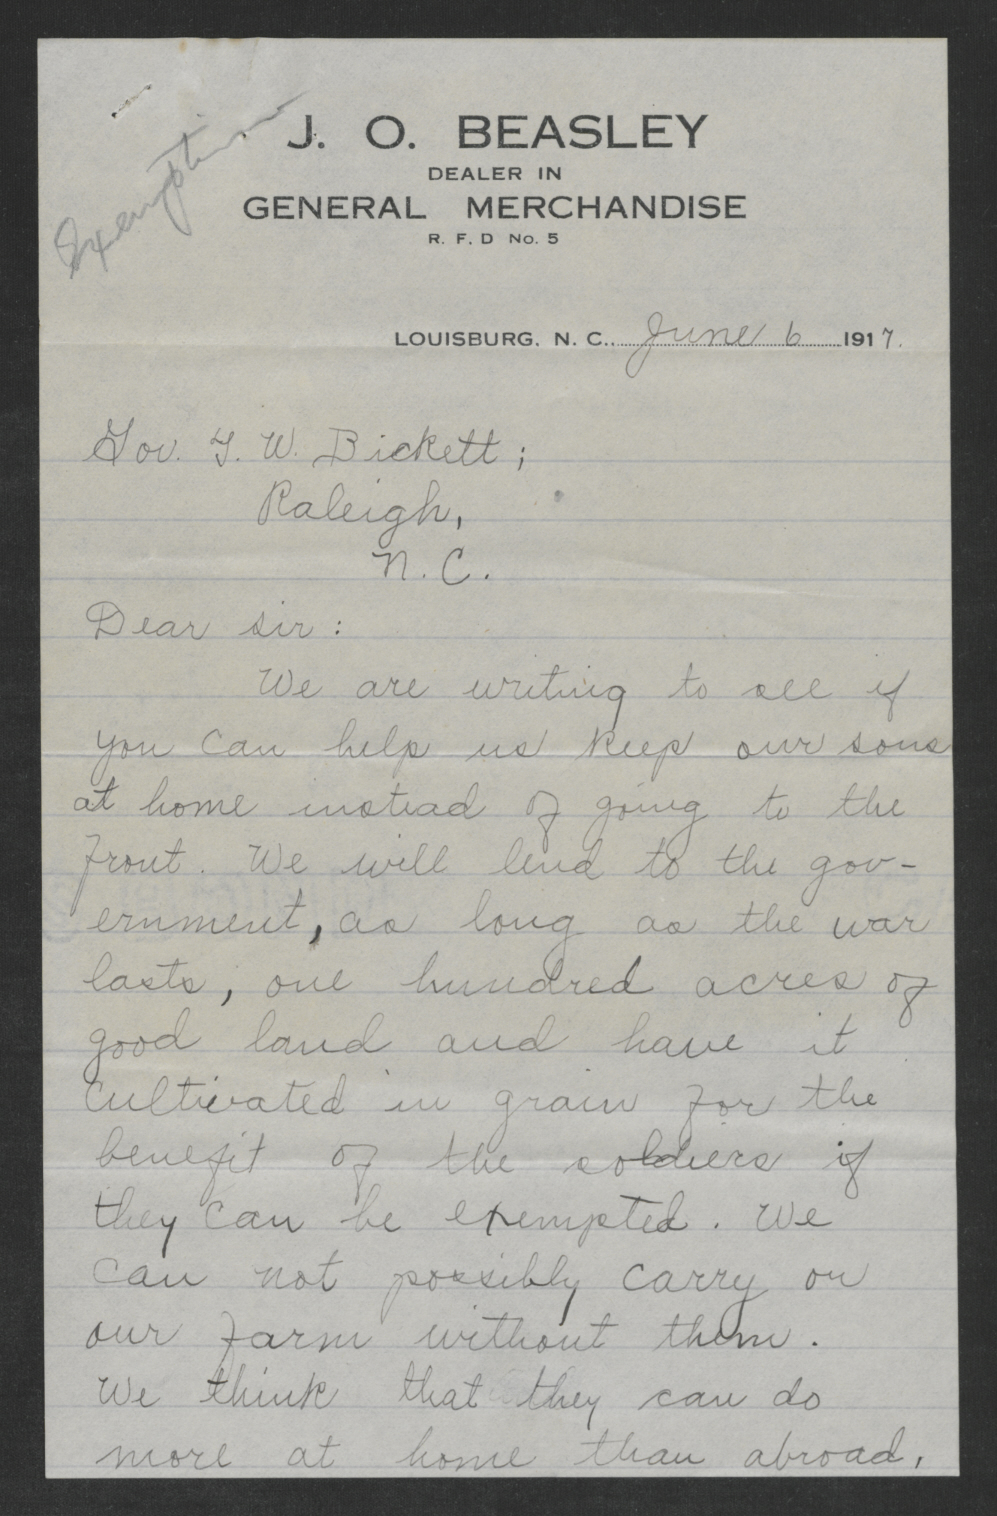 Exemption
J. O. BEASLEY
DEALER IN
GENERAL MERCHANDISE
R. F. D No. 5
LOUISBURG. N. C. June 6 1917.
Gov. T. W. Bickett;
Raleigh,
N. C.
Dear sir:
We are writing to see if
you can help us keep our sons
at home instead of going to the
front. We will lend to the gov-
ernment, as long as the war
lasts, one hundred acres of
good land and have it
cultivated in grain for the
benefit of the soldiers if
they can be exempted. We
can not possibly carry on
our farm without them.
We think that they can do
more at home than abroad,